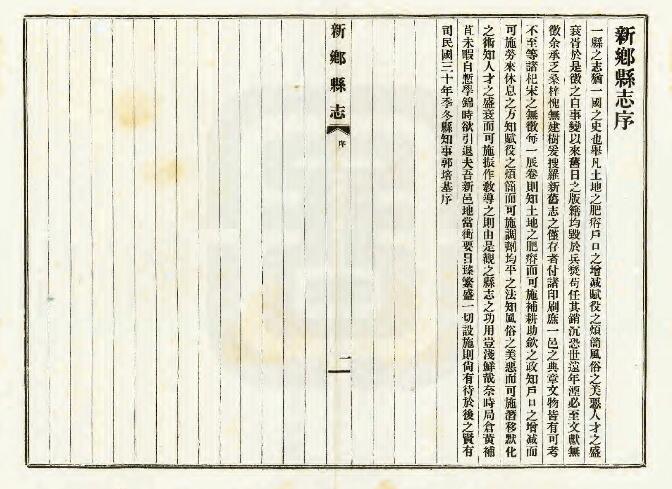 新鄉縣志序
一縣之志猶一國之史也舉凡土地之肥瘠戶口之增減賦役之煩簡風俗之美惡人才之盛
衰胥於是徵之自事變以來舊日之版籍均毀於兵燹苟任其銷沉恐世遠年湮必至文獻無
徵余承乏桑梓愧無建樹爰搜羅新舊志之僅存者付諸印刷庶一邑之典章文物皆有可考
不至等諸杞宋之無徵每一展卷則知土地之肥瘠而可施補耕助斂之政知戶口之增減而
可施勞來休息之方知賦役之煩簡而可施調劑均平之法知風俗之美惡而可施潛移默化
之術知人才之盛衰而可施振作敎導之則由是觀之縣志之功用豈淺鮮哉奈時局倉黃補
苴未暇自慙學錦時欲引退夫吾新邑地當衝要日臻繁盛一切設施則尙有待於後之賢有
司民國三十年季冬縣知事郭培基序
新鄉縣志
序
一